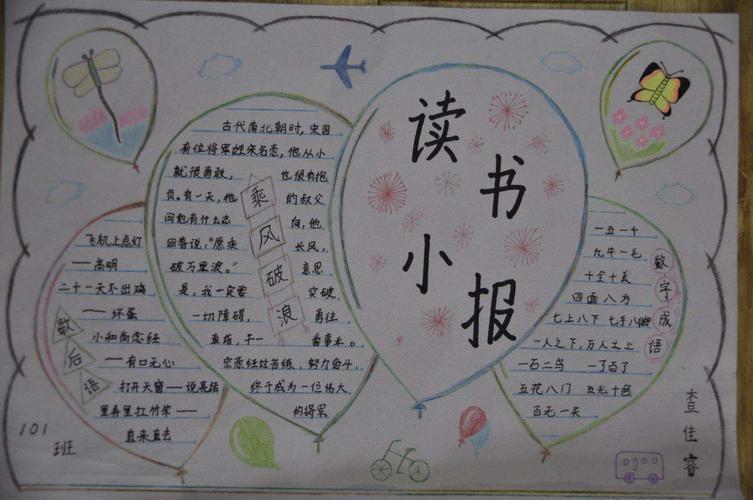 读书小报
古代南北朝时,宋国
有位将军姓宗名悫,他从小
就很勇敢, 也很有抱
负。有一天,他 的叔父
问他有什么志 向,他
回答说:“愿乘 长风,
破万里波。” 意思
是,我一定要 突破
一切障碍, 勇往
直前,干一 番事业。
宗悫经过苦练,努力奋斗,
终于成为一位伟大
的将军
乘风破浪
歇后语
飞机上点灯
——高明
二十一天不出鸡
——坏蛋
小和尚念经
——有口无心
打开天窗——说亮话
里弄里扛竹竿——
直来直去
数字成语
一五一十
九牛一毛
十全十美
四面八方
七上八下 七手八脚
一人之下,万人之上
一石二鸟 一了百了
五花八门 五光十色
百无一失
101
班
查佳睿